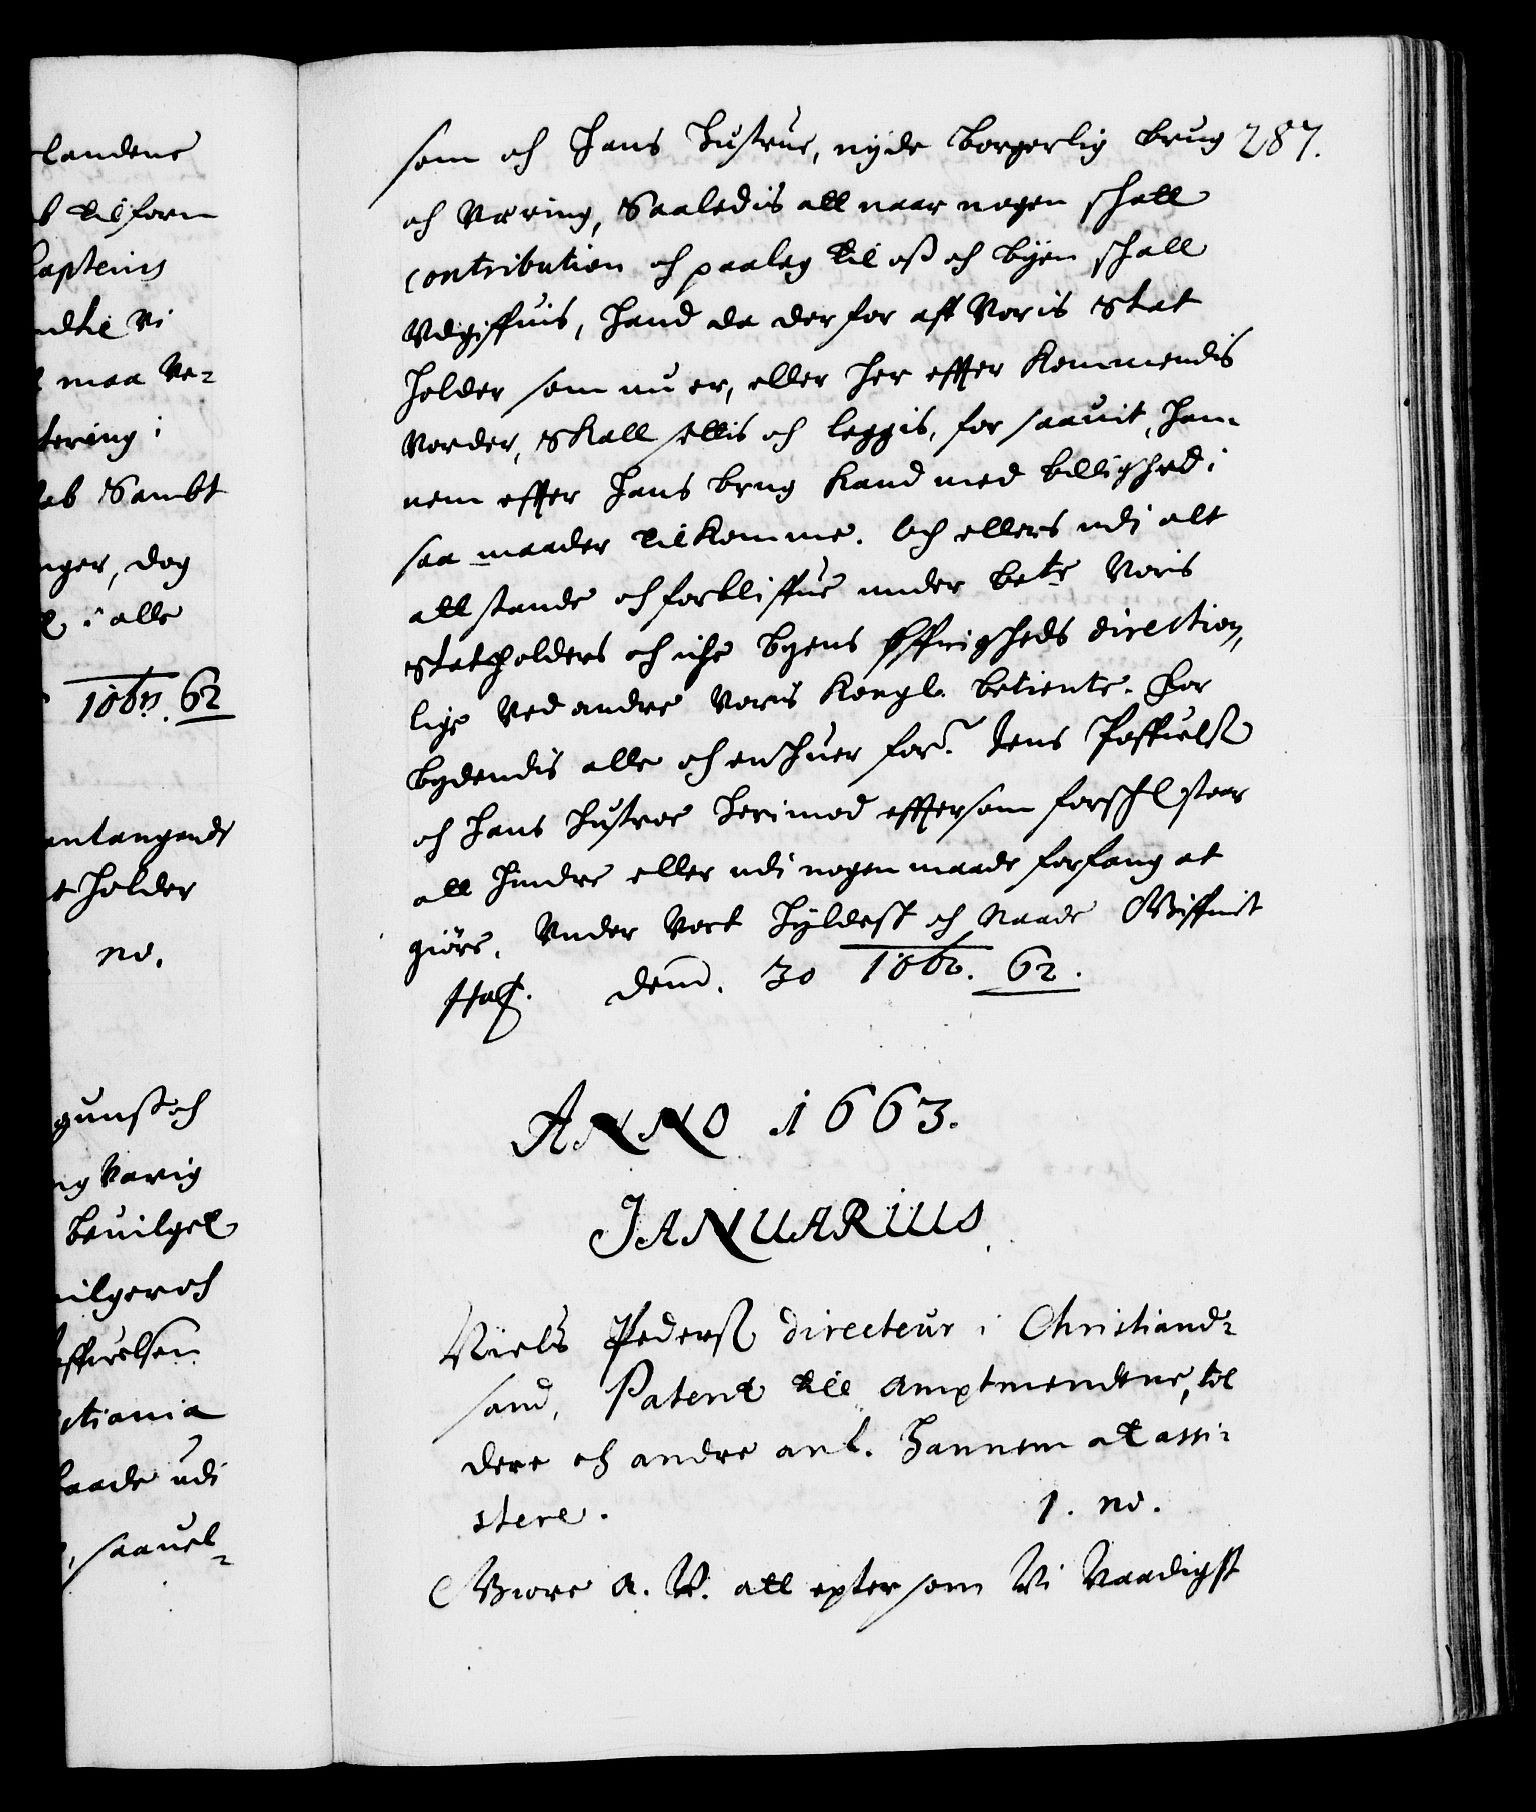 landene
til forn
Capteins
Vi
maa Ve=
tering i
Sambt
nger, dog
i alle
10br. 62
antangende
holder
no.
gunst och
ng Varig
beuilget
uilger och
ffuelsen
stiania
baade udi
, saauel=
som och hans Hustrue, nyde borgerlig brug 287.
och Næring, Saaledis att naar nogen schatt
contribution och paaleg til oss och byen schall
Vdgiffuis, hand da derfor aff Voris Stat
holder som nu er, eller her effter Kommendis
Vorder, Skall settis och leggis, for saauit, han-
nem effter hans brug Kand med billighed i
saa maader tilkomme. Och ellers udi alt
att stande och forbliffue under bete Voris
Statholders och iche byens Øffrigheds direction,
lige Ved andre Voris Kongl. betiente. For
bydendis alle och en huer forne Jens
och hans Hustroe herimod efftersom forschreffuet staar
att hindre eller udi nogen maade forfang at
giøre. Vnder Vort Hyldest och Naade Giffuet
Haff. dend. 30 10br. 62.
ANNO 1663.
JANUARIUS
Niels Pederss directeur i Christiand=
sand, Patent till Amptmendene, tol
dere och andre anl. hannem at assi=
stere. 1. no.
Giøre A. V. att epter som Vi Naadigst